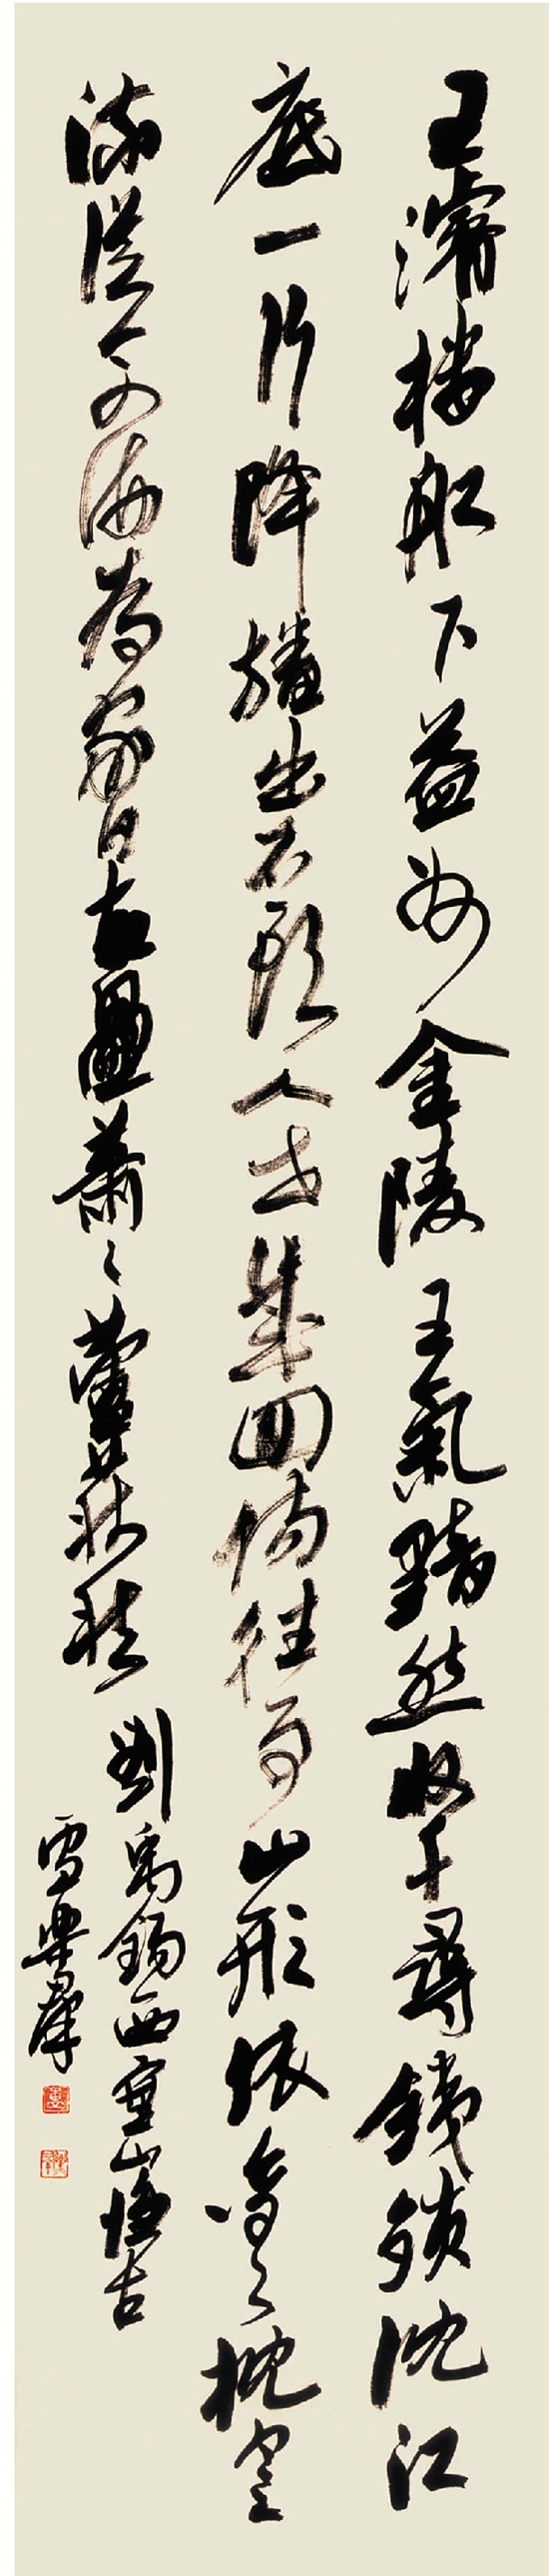 王濬樓船下益州金陵王氣黯然收千尋鐵鎖沈江
底一片降旛出石頭人世幾回傷往事山形依舊枕寒
流從今四海為家日故壘蕭〻蘆荻秋
劉禹錫西塞山懷古
樂群